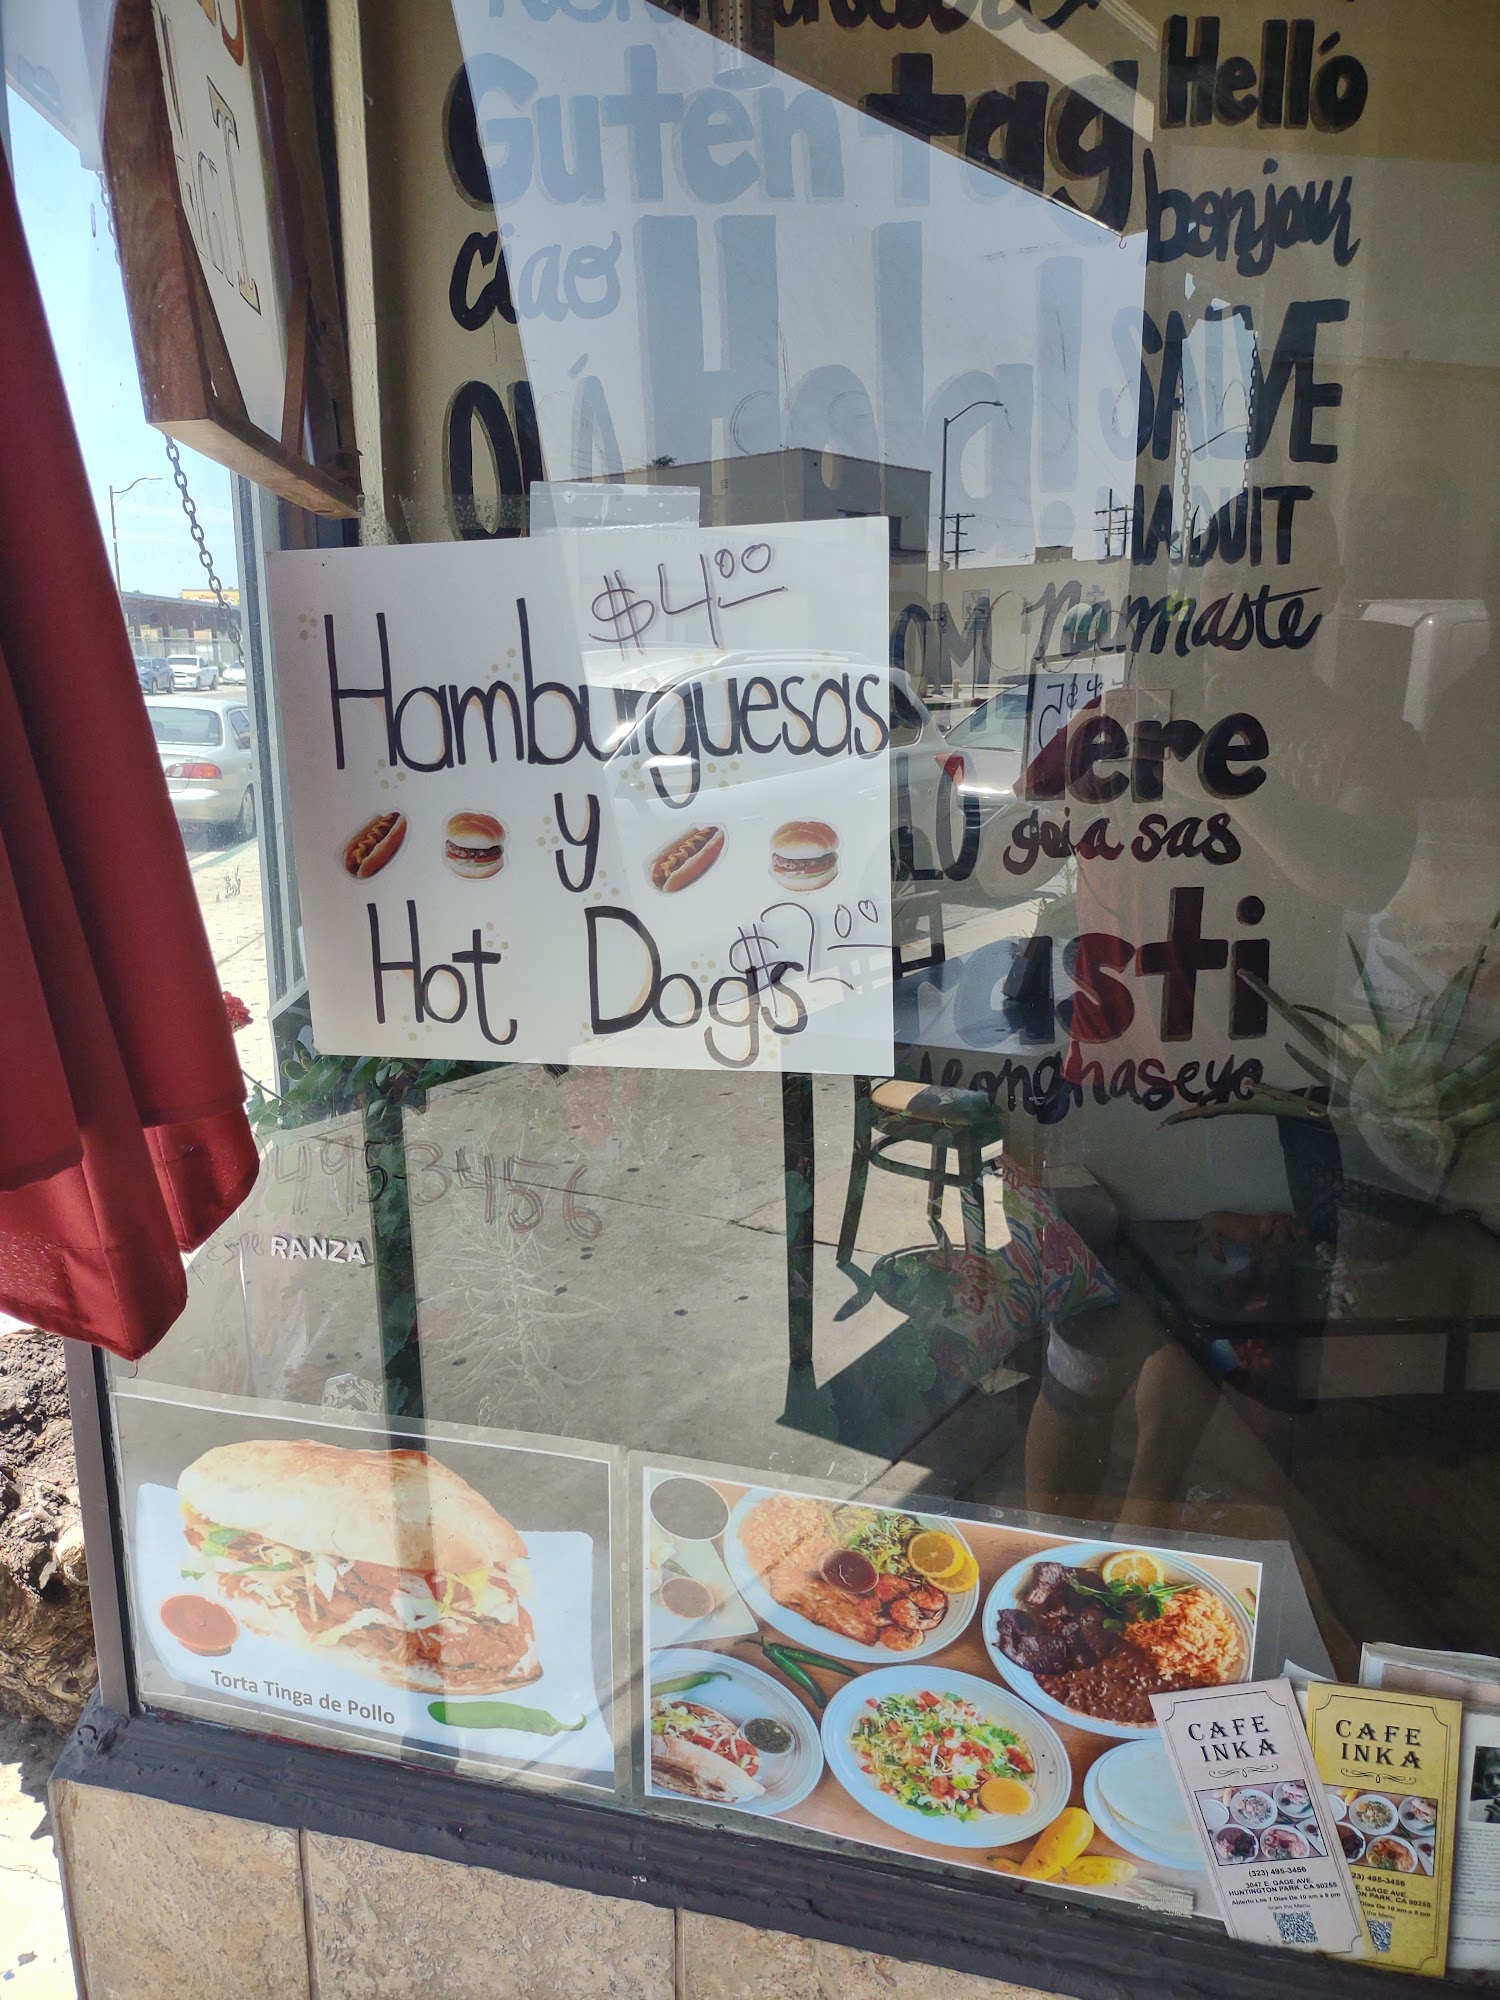 Guten tag
Helló
ciao
bonjour
Olá
Hola!
SALVE
NAMASTE
$4.00
Hamburguesas
y
Hot Dogs
$2.00
goia sas
asti
4953456
RANZA
Torta Tinga de Pollo
CAFE
INKA
(323) 495-3456
3047 E. GAGE AVE.
HUNTINGTON PARK, CA 90255
Abierto Los 7 Dias De 10 am a 8 pm
Scan the Menu
CAFE
INKA
23) 495-3456
E. GAGE AVE.
ON PARK, CA 90255
Dias De 10 am a 8 pm
the Menu